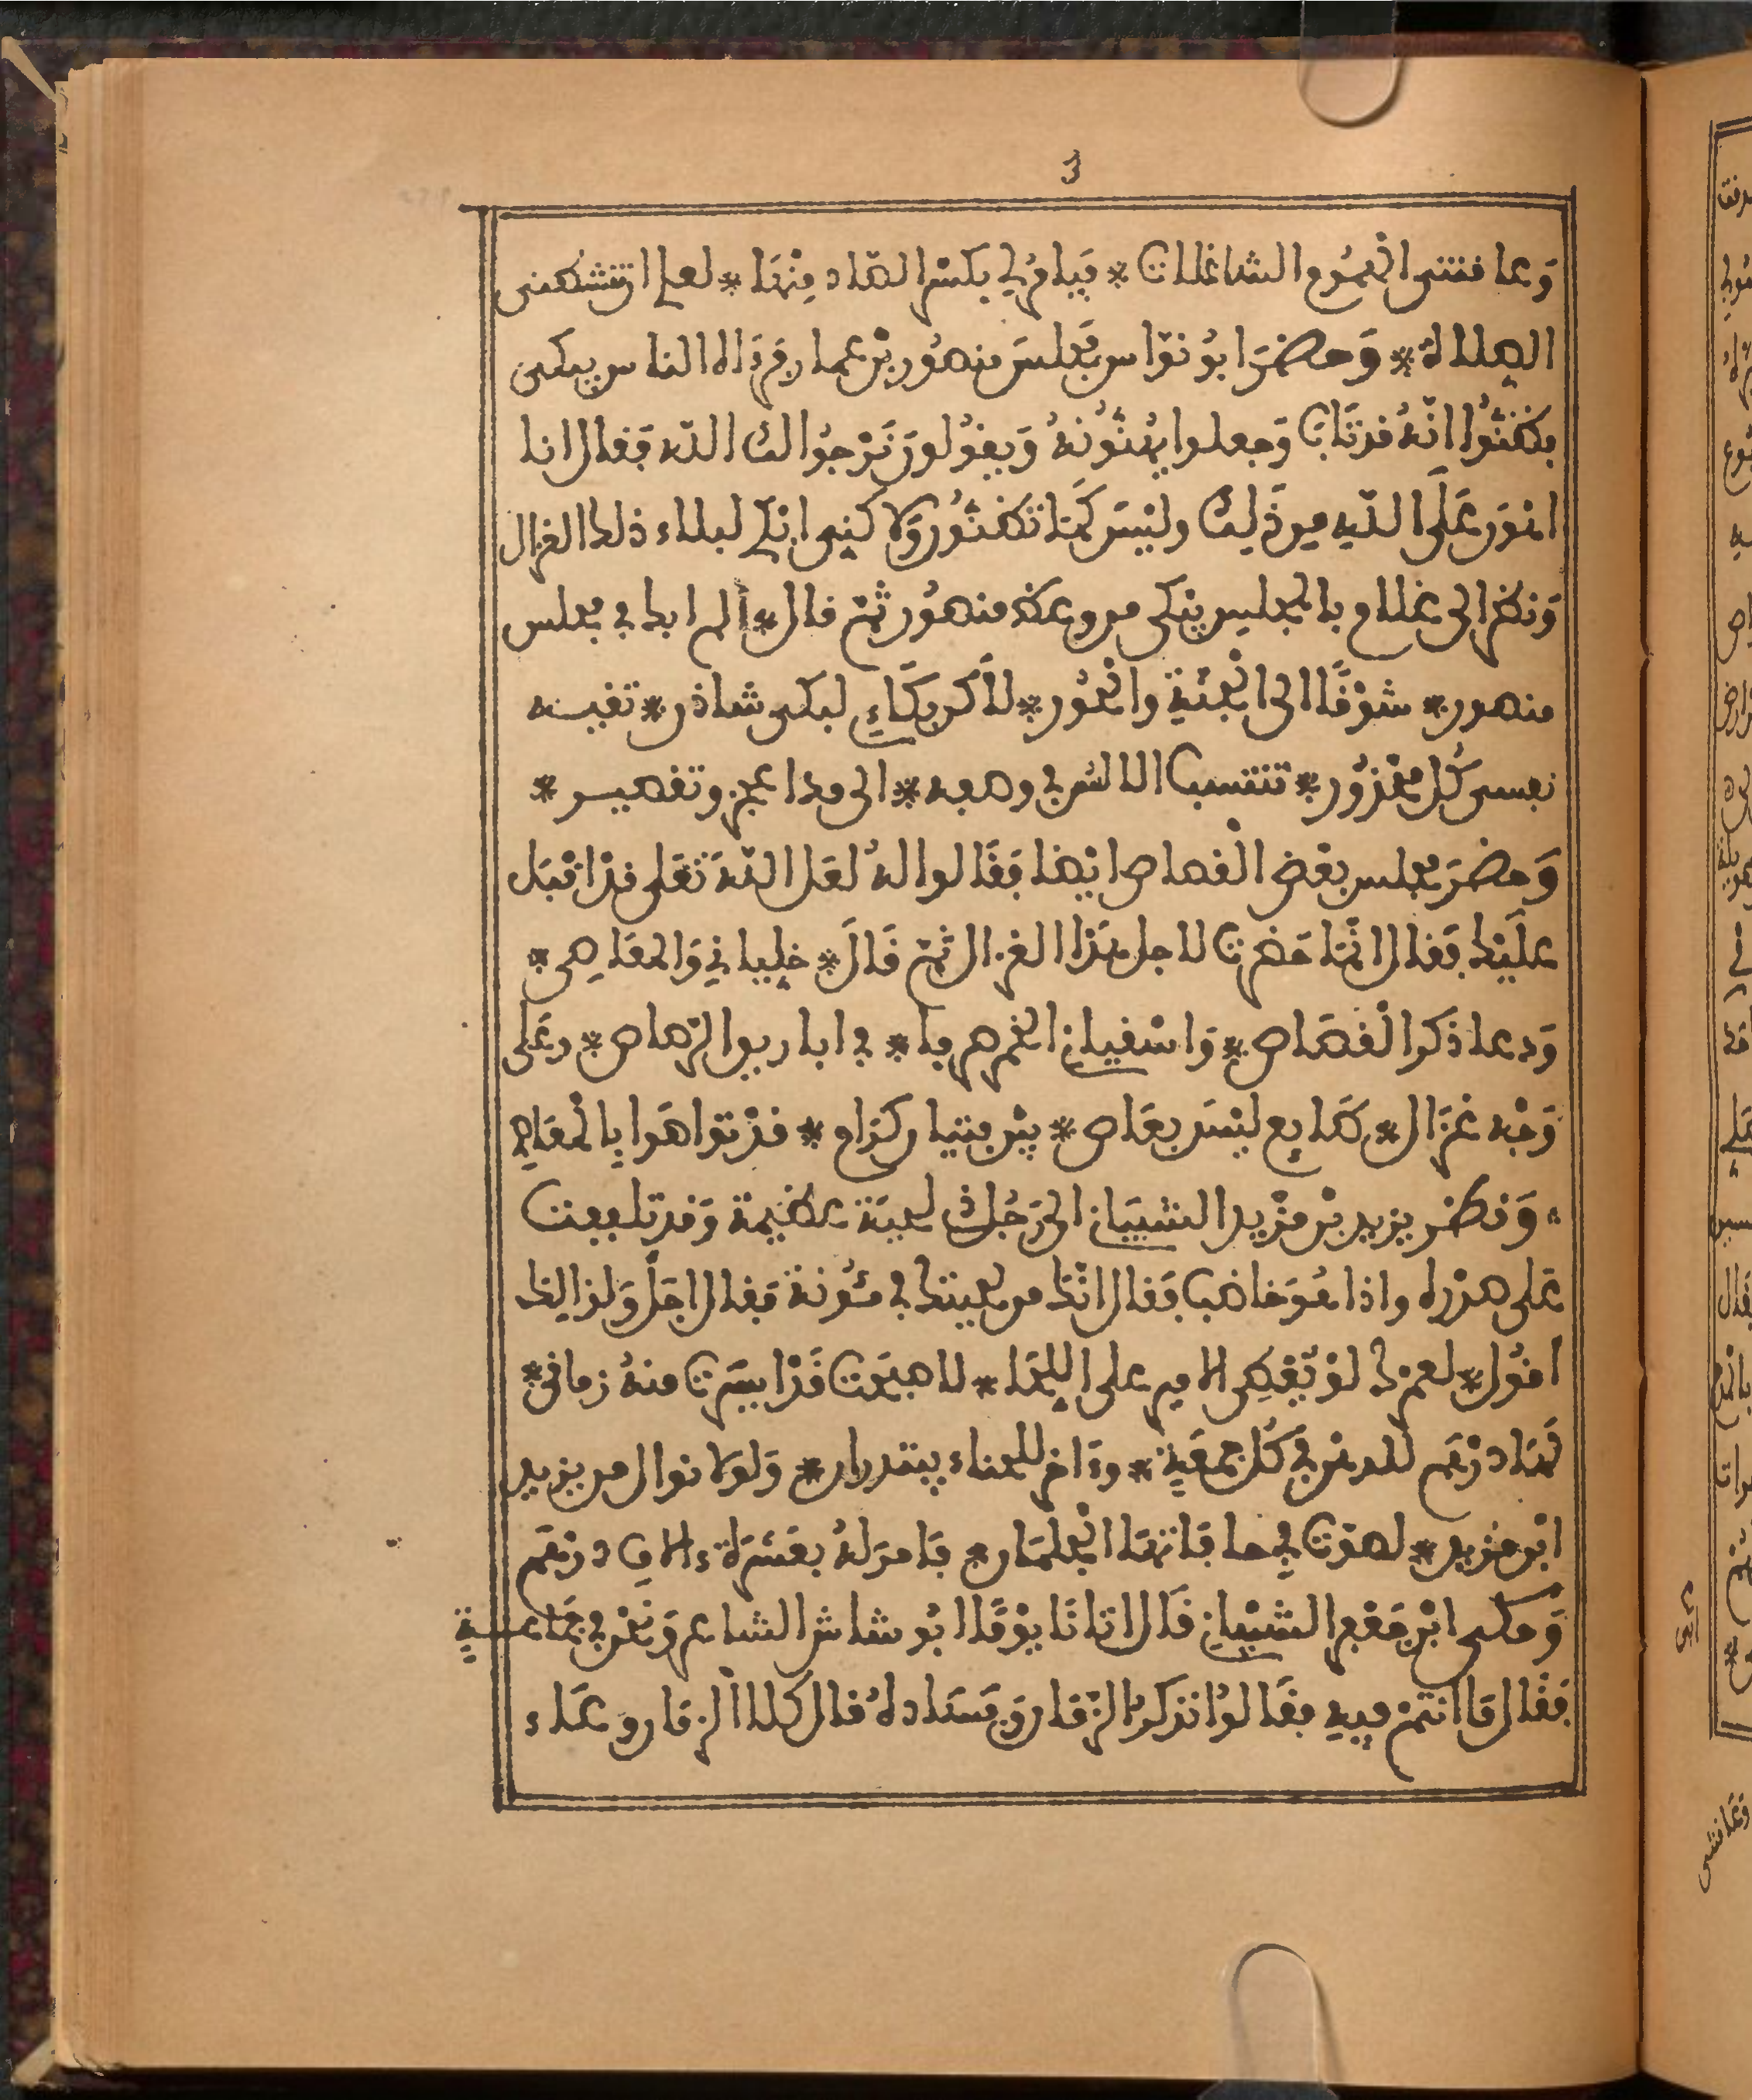 3
وعافتنى الخشوع الشاغلات * فيامر لى بكسر الصاد منها * لعلى ان تشكفنى
الصلاة * وحضر ابو نواس مجلس منصور بن عمار فرءاه الناس يبكى
بظنّوا انّه قد تاب وجعلوا يهنّونه ويقولون نرجوا لك الله فقال انا
اهون على الله من ذلك وليس كما تظنّون ولا كنى ابكى لبكاء ذلك الغزال
ونظر الى غلام بالمجلس يبكى من وعظ منصور ثم قال * الم ابك فى مجلس
منصور * شوقا الى الجنّة والحور * لاكن بكاءى لبكى شاذن * تقيسه
نفسى كل محذور * تنتسب الالسن فى وصفه * الى مدا عجز وتقصير *
وحضر مجلس بعض القصاص ايضا فقالوا له لعل الله تعلى قد اقبل
عليك فقال انّما حضرت لاجل هذا الغزال ثم قال * خليانى والمعاصى *
ودعا ذكر القصاص * واسقيانى الخمر صرفا * فى اباريق الرصاص * وعلى
وجه غزال * طايع ليس بعاص * بين فتيان كرام * قد تواصوا بالمعاص
* ونظر يزيد بن مزيد الشيبانى الى رجل ذى لحية عظيمة وقد تلففت
على صدره واذا هو خاضب فقال انك من لحيتك فى مئونة فقال اجل ولذالك
اقول * لعمرك لو يعطى الامير على اللحا * لاصبحت قد ايسرت منه زمانى *
لها درهم للدهن فى كل جمعة * وءاخر للحناء يبتدران * ولولا نوال من يزيد
ابن مزيد * لصوت فى حافاتها الجلمان * فامر له بعشرة ءالاف درهم
وحكى ابن جعفر الشيبانى قال اتانا يوما ابو شاش الشاعر ونحن فى جماعة
فقال ما انتم فيه فقالوا نذكر الزمان وفساده قال كلا الزمان وعاء